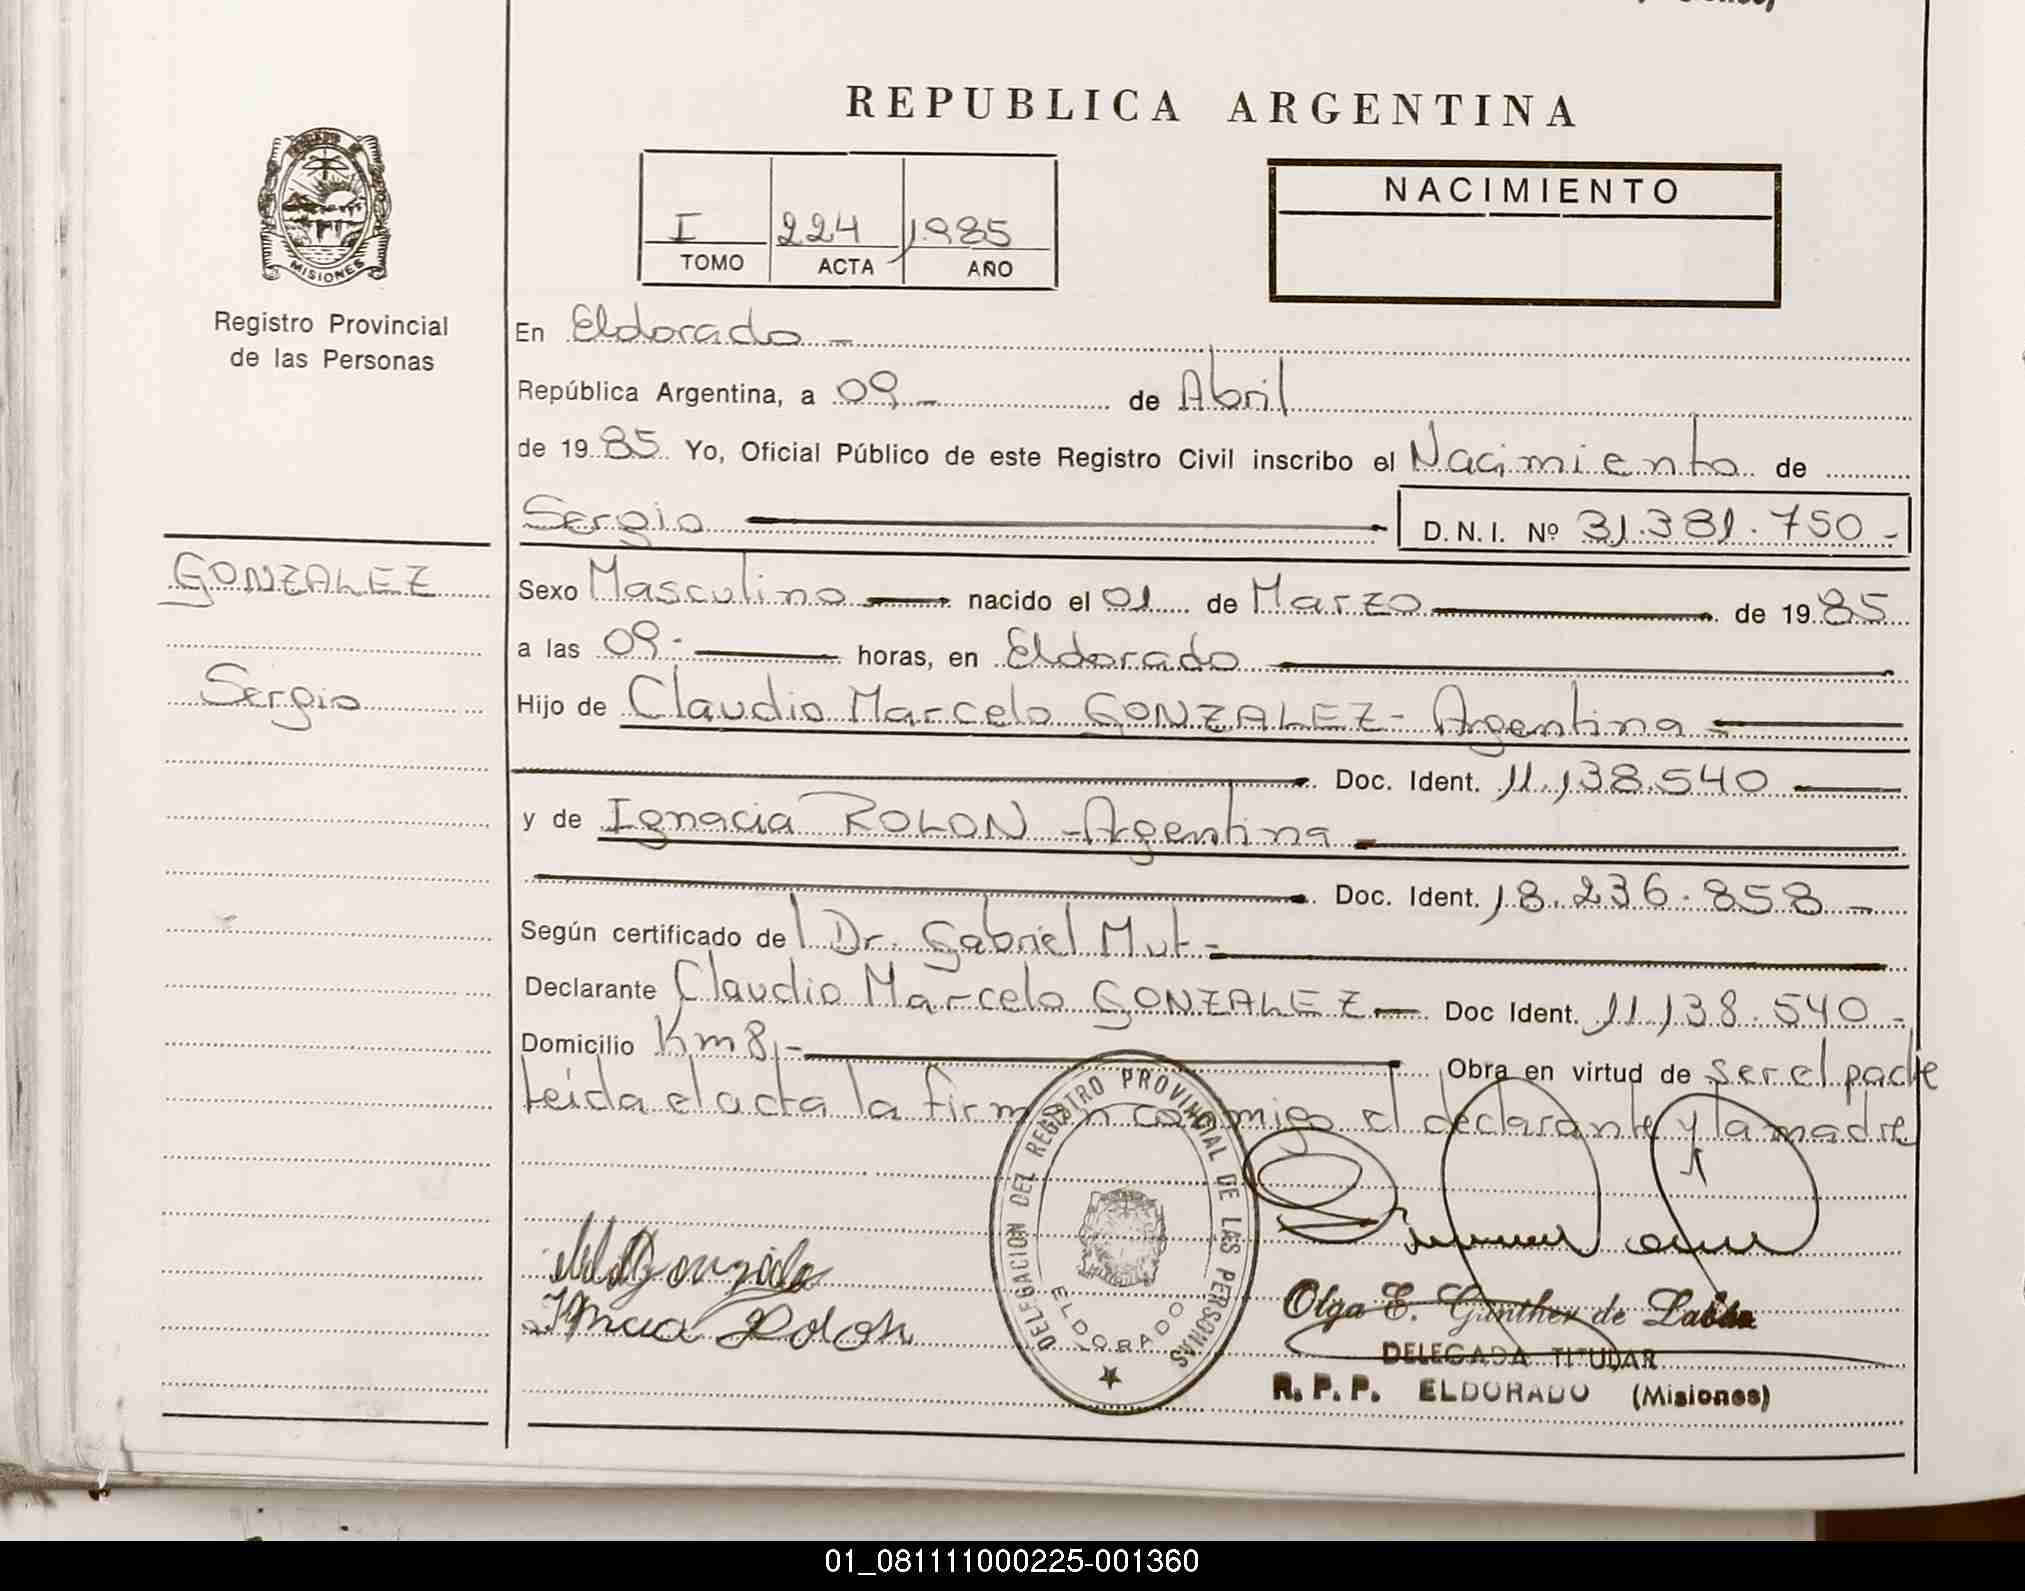 REPUBLICA ARGENTINA
MISIONES
Registro Provincial
de las Personas
I 224 1985
TOMO ACTA AÑO
NACIMIENTO
En Eldorado -
República Argentina, a 09 - de Abril
de 1985 Yo, Oficial Público de este Registro Civil inscribo el Nacimiento de
Sergio D.N.I. Nº 31.381.750-
GONZALEZ
Sergio
Sexo Masculino nacido el 01 de Marzo de 1985
a las 09- horas, en Eldorado
Hijo de Claudio Marcelo GONZALEZ - Argentina
Doc. Ident. 11.138.540
y de Ignacia ROLON - Argentina
Doc. Ident. 18.236.858 -
Según certificado del Dr. Gabriel Mut -
Declarante Claudio Marcelo GONZALEZ Doc Ident. 11.138.540 -
Domicilio Km 8,- Obra en virtud de ser el padre
Leida el acta la firman conmigo el declarante y la madre
DELEGACION DEL REGISTRO PROVINCIAL DE LAS PERSONAS
ELDORADO
Rolon
Olga E. Günther de
DELEGADA TITULAR
R. P. P. ELDORADO (Misiones)
01_081111000225-001360